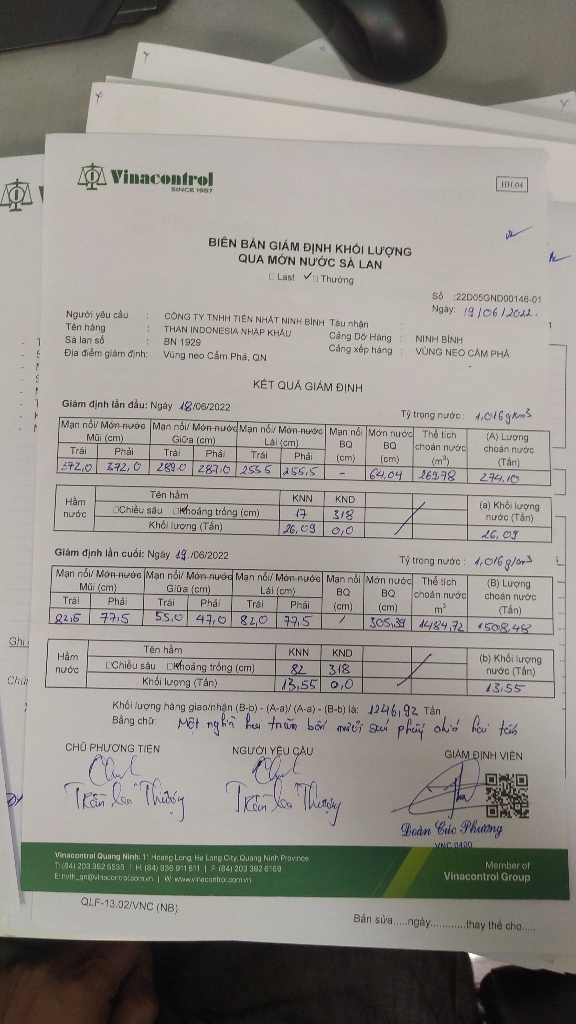 Vinacontrol
SINCE 1957
HH.04
BIÊN BẢN GIÁM ĐỊNH KHỐI LƯỢNG
QUA MỚN NƯỚC SÀ LAN
□ Last ✓□ Thường
Số :22D05GND00146-01
Ngày: 19/06/2022.
Người yêu cầu : CÔNG TY TNHH TIẾN NHẤT NINH BÌNH Tàu nhận :
Tên hàng : THAN INDONESIA NHẬP KHẨU Cảng Dỡ Hàng : NINH BÌNH
Sà lan số : BN 1929 Cảng xếp hàng : VÙNG NEO CẨM PHẢ
Địa điểm giám định: Vùng neo Cẩm Phả, QN
KẾT QUẢ GIÁM ĐỊNH
Giám định lần đầu: Ngày 18/06/2022 Tỷ trọng nước : 1,016g/cm3
Mạn nổi/ Mớn nước Mũi (cm) Mạn nổi/ Mớn nước Giữa (cm) Mạn nổi/ Mớn nước Lái (cm) Mạn nổi BQ (cm) Mớn nước BQ (cm) Thể tích choán nước (m³) (A) Lượng choán nước (Tấn)
Trái Phải Trái Phải Trái Phải
372,0 372,0 289,0 287,0 255,5 255,5 - 64,04 269,78 274,10
Hầm nước Tên hầm KNN KND (a) Khối lượng nước (Tấn)
□Chiều sâu □Khoảng trống (cm) 17 318
Khối lượng (Tấn) 26,09 0,0 26,09
Giám định lần cuối: Ngày 19./06/2022 Tỷ trọng nước : 1,016g/cm3
Mạn nổi/ Mớn nước Mũi (cm) Mạn nổi/ Mớn nước Giữa (cm) Mạn nổi/ Mớn nước Lái (cm) Mạn nổi BQ (cm) Mớn nước BQ (cm) Thể tích choán nước m³ (B) Lượng choán nước (Tấn)
Trái Phải Trái Phải Trái Phải
82,5 77,5 55,0 47,0 82,0 77,5 / 305,39 1484,72 1508,48
Hầm nước Tên hầm KNN KND (b) Khối lượng nước (Tấn)
□Chiều sâu □Khoảng trống (cm) 82 318
Khối lượng (Tấn) 13,55 0,0 13,55
Khối lượng hàng giao/nhận (B-b) - (A-a)/ (A-a) - (B-b) là: 1246,92 Tấn
Bằng chữ: Một nghìn hai trăm bốn mươi sáu phẩy chín hai tấn
CHỦ PHƯƠNG TIỆN NGƯỜI YÊU CẦU GIÁM ĐỊNH VIÊN
Trần Văn Thượng Trần Văn Thượng
Đoàn Cúc Phương
VNC 0400
Vinacontrol Quang Ninh: 11 Hoang Long, Ha Long City, Quang Ninh Province
T:(84) 203 382 5535 | H: (84) 936 911 811 | F: (84) 203 382 6169
E:nvth_qn@vinacontrol.com.vn | W: www.vinacontrol.com.vn
Member of
Vinacontrol Group
QLF-13.02/VNC (NB)
Bản sửa.....ngày............thay thế cho.....